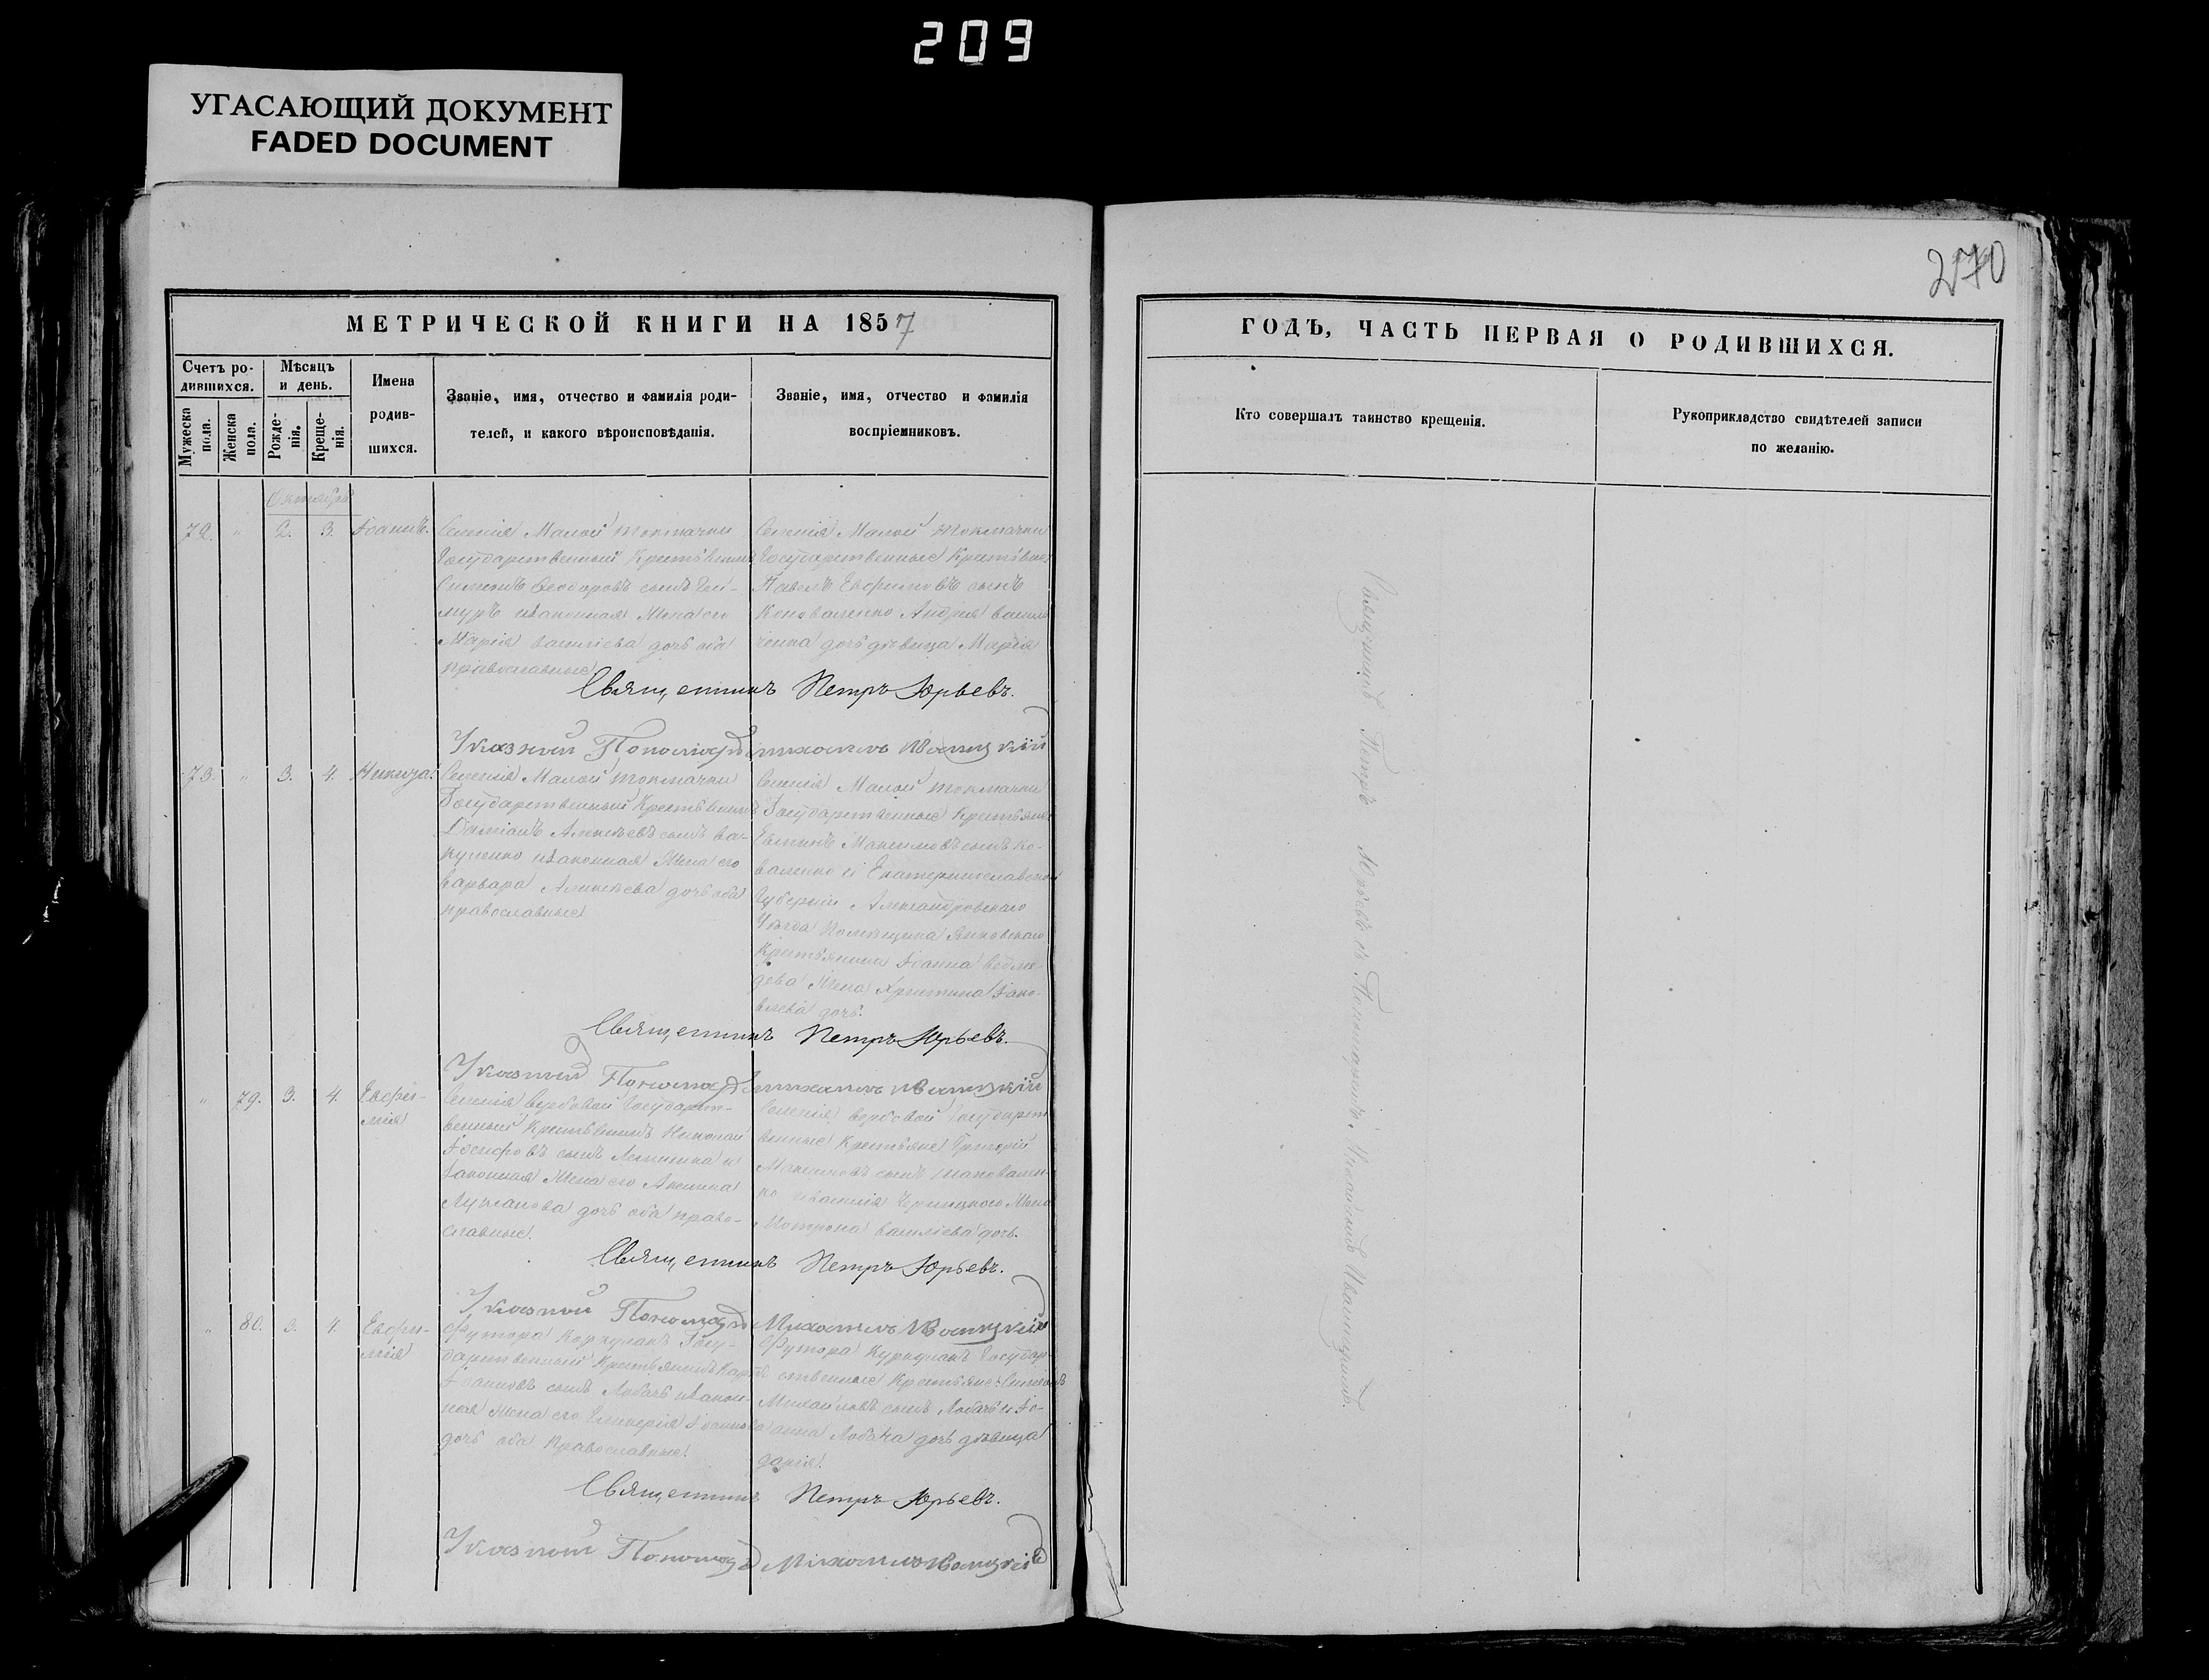 209
УГАСАЮЩИЙ ДОКУМЕНТ
FADED DOCUMENT
270
МЕТРИЧЕСКОЙ КНИГИ НА 1857
ГОДЪ, ЧАСТЬ ПЕРВАЯ О РОДИВШИХСЯ.
Счетъ ро-
дившихся.
Мужеска
пола.
Женска
пола.
Мѣсяцъ
и день.
Рожде-
нія.
Креще-
нія.
Имена
родив-
шихся.
Званіе, имя, отчество и фамилія роди-
телей, и какого вѣроисповѣданія.
Званіе, имя, отчество и фамилія
воспріемниковъ.
Кто совершалъ таинство крещенія.
Рукоприкладство свидѣтелей записи
по желанію.
Октября
72. " 2. 3. Іоаннъ.
Селенія Малой Токмачки
Государственный Крестьянинъ
Симеонъ Феодоровъ сынъ
и законная Жена его
Марія Васильева дочь оба
православные
Селенія Малой Токмачки
Государственные Крестьяне
Павелъ Евфимовъ сынъ
Коноваленко Андрея
дочь дѣвица Марія
Священникъ Петръ Юрьевъ.
Указный Пономарь Михаилъ Иваницкій
73. " 3. 4. Никита.
Селенія Малой Токмачки
Государственный Крестьянинъ
Даміанъ Алексѣевъ сынъ Ва-
куленко и законная Жена его
Варвара Алексѣева дочь оба
православные
Селенія Малой Токмачки
Государственные Крестьяне
Максимовъ сынъ Ко-
валенко и Екатеринославской
Губерніи Александровскаго
Уѣзда Помѣщика
Крестьянина Іоанна
Жена Христина Іако-
влева дочь.
Священникъ Петръ Юрьевъ.
Указный Пономарь Михаилъ Иваницкій
" 79. 3. 4. Евфи-
мія
Селенія Вербовой Государст-
венный Крестьянинъ Николай
Іосифовъ сынъ и
законная Жена его Аксинія
Лукіанова дочь оба право-
славные.
Селенія Вербовой Государст
венные Крестьяне Григорій
Максимовъ сынъ Шаповален-
ко Жена
Мотрона Васильева дочь.
Священникъ Петръ Юрьевъ.
Указный Пономарь Михаилъ Иваницкій
" 80. 3. 4. Евфи-
мія
Футора Куркулакъ Госу-
дарственный Крестьянинъ
Іоанновъ сынъ Лобачъ и закон-
ная Жена его Гликерія Іоаннова
дочь оба Православные.
Футора Куркулакъ Государ-
ственные Крестьяне:
Михайловъ сынъ Лобачъ и Іо-
анна Лобача дочь дѣвица
Дарія.
Священникъ Петръ Юрьевъ.
Указный Пономарь Михаилъ Иваницкій
Священникъ Петръ Юрьевъ съ Пономаремъ Михаиломъ Иваницкимъ.